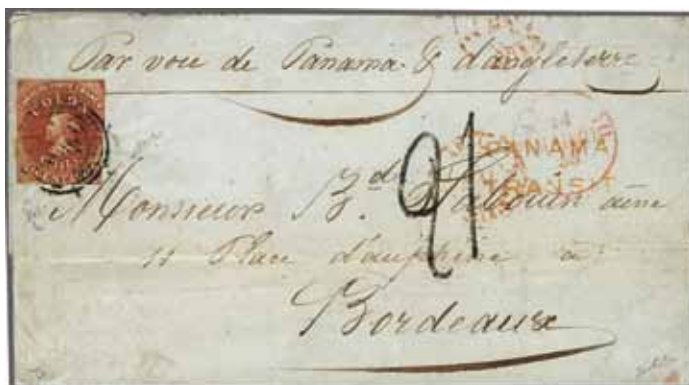 Par voie de Panama & d'angleterre
COLON
21
PANAMA
TRANSIT
Monsieur B.d Labouin aîné
11 Place dauphine à
Bordeaux